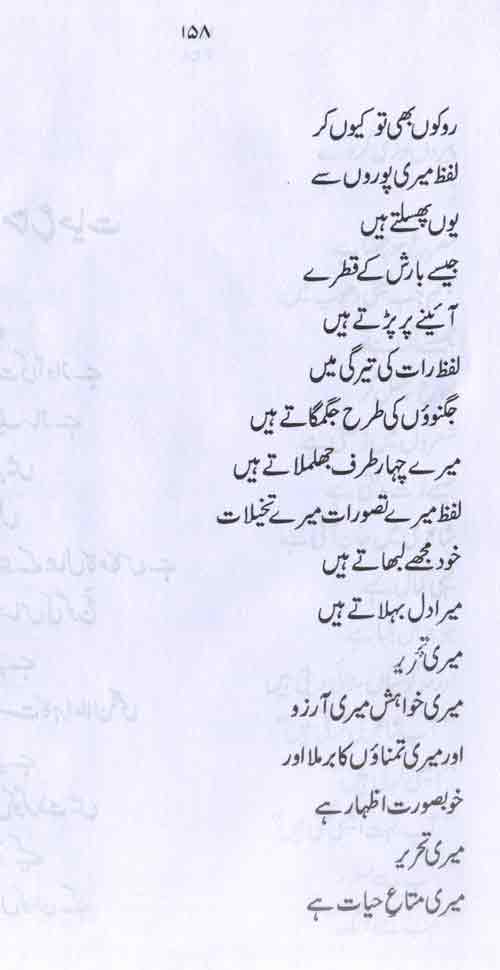 ۱۵۸
روکوں بھی تو کیوں کر
لفظ میری پوروں سے
یوں پھسلتے ہیں
جیسے بارش کے قطرے
آئینے پر پڑتے ہیں
لفظ رات کی تیرگی میں
جگنوؤں کی طرح جگمگاتے ہیں
میرے چہار طرف جھلملاتے ہیں
لفظ میرے تصورات میرے تخیلات
خود مجھے لبھاتے ہیں
میرا دل بہلاتے ہیں
میری تحریر
میری خواہش میری آرزو
اور میری تمناؤں کا برملا اور
خوبصورت اظہار ہے
میری تحریر
میری متاعِ حیات ہے